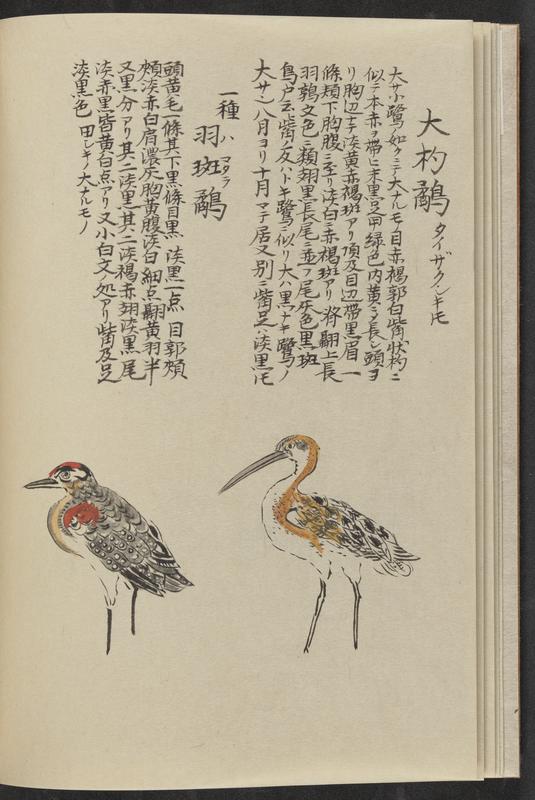 大杓鷸 タイザクシギ
大サ小鷺ノ如クニテ大ナルモノ目赤褐郭白觜状杓ニ
似テ本赤ヲ帯ヒ末黒足甲緑色内黄ニ〆長シ頭ヨ
リ胸辺マテ淡黄赤褐斑アリ頂及目辺帯黒眉一
條頬下胸腹ニ至リ淡白ニ赤褐斑アリ背翮上長
羽鶉文色ニ類翅里長尾ニ並フ尾灰色黒斑
鳥戸云觜ノ反ハトキ鷺ニ似リ大ハ黒ツナキ鷺ノ
大サシ八月ヨリ十月マテ居又別ニ觜足ハ淡黒モ
一種ハ
羽斑鷸 マタラ
頭黄毛一條其下黒條目黒淡黒一点目郭頬
頬淡赤白肩濃灰胸黄腹淡白細点翮黄羽半
又黒分アリ其二淡里其二淡褐赤翅淡黒尾
淡赤黒皆黄白点アリ又小白文ノ処アリ觜及足
淡黒色田シギノ大ナルモノ